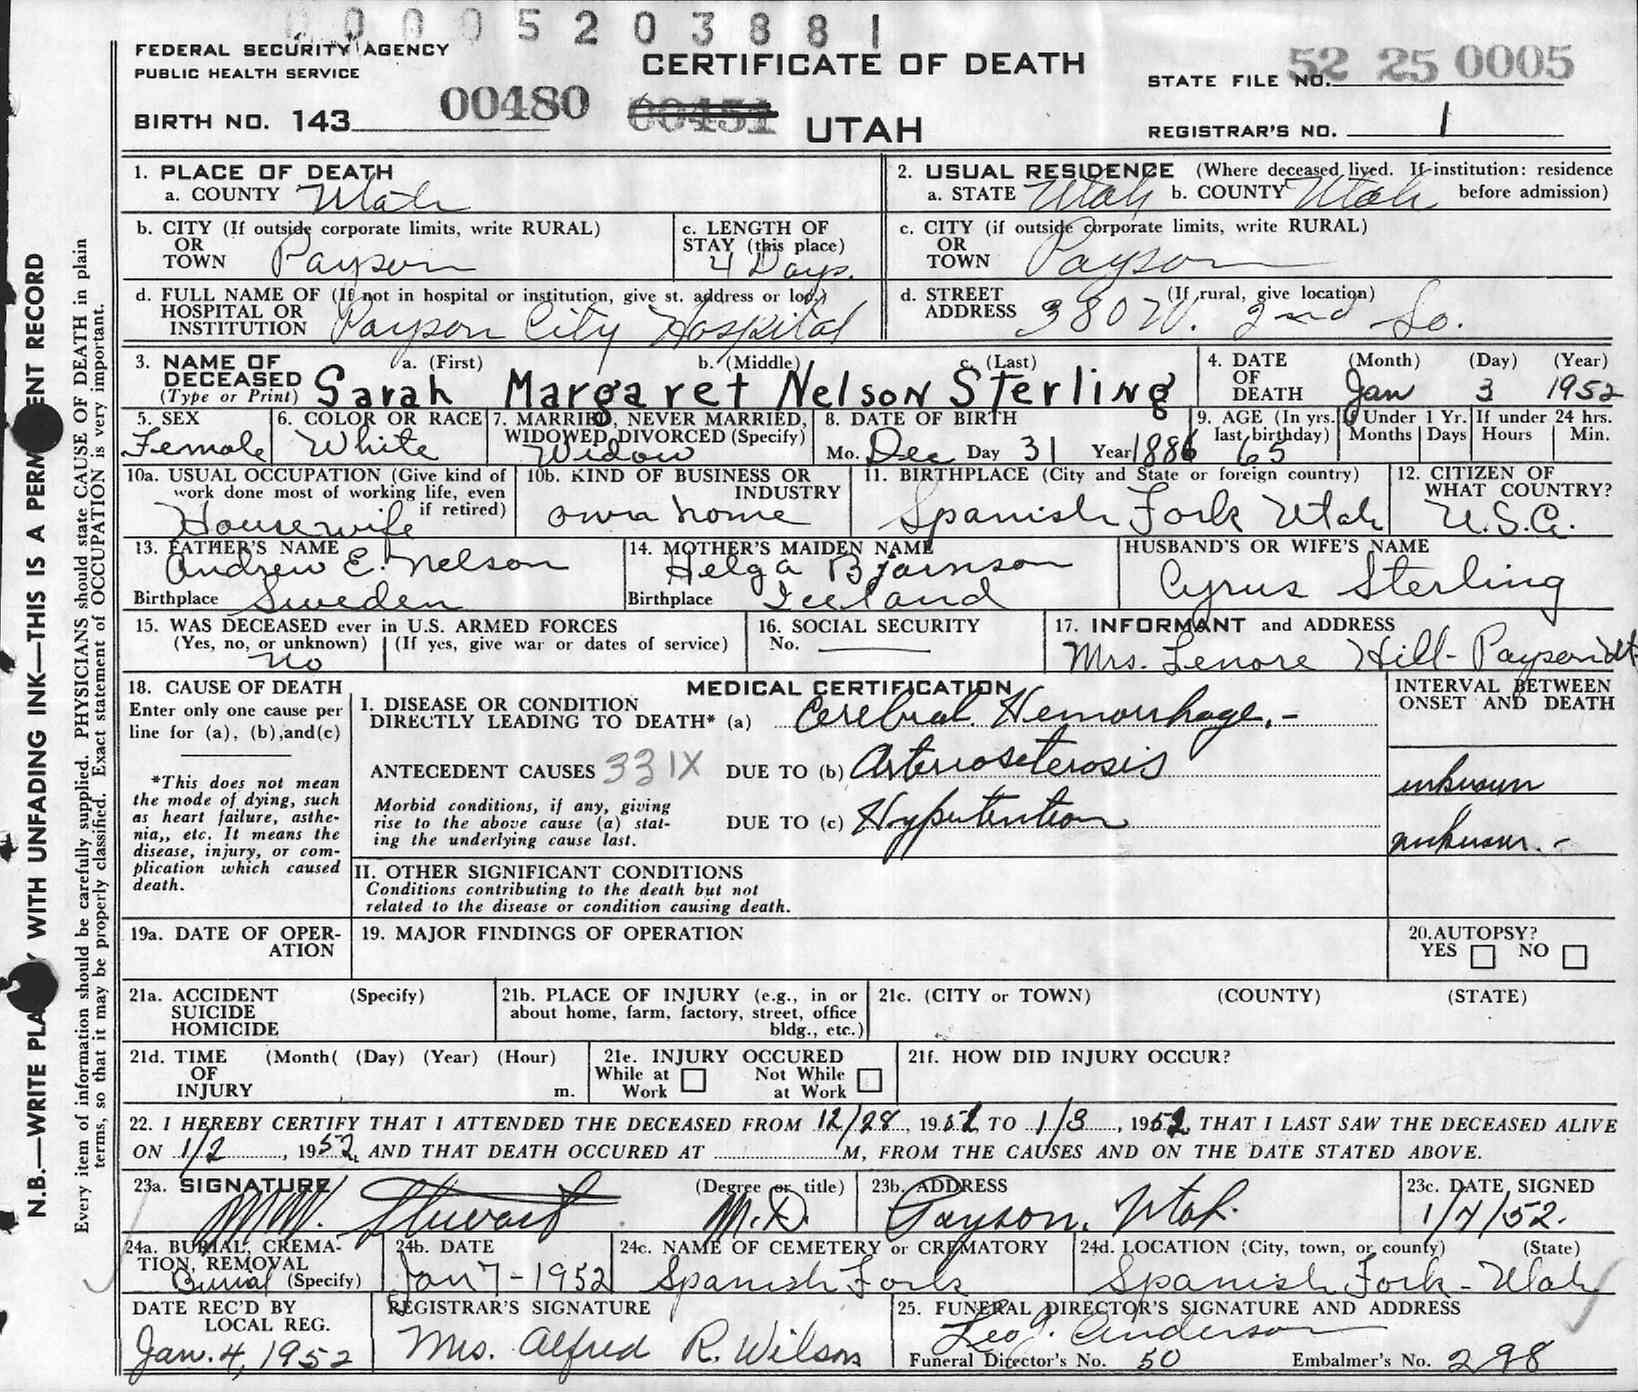 0 0 0 5 2 0 3 8 8 1
FEDERAL SECURITY AGENCY
PUBLIC HEALTH SERVICE
CERTIFICATE OF DEATH
STATE FILE NO. 52 25 0005
BIRTH NO. 143 00480 00451 UTAH
REGISTRAR'S NO. 1
N.B.—WRITE PLA WITH UNFADING INK—THIS IS A PERM ENT RECORD
Every item of information should be carefully supplied. PHYSICIANS should state CAUSE OF DEATH in plain
terms, so that it may be properly classified. Exact statement of OCCUPATION is very important.
1. PLACE OF DEATH
a. COUNTY Utah
2. USUAL RESIDENCE (Where deceased lived. If institution: residence
a. STATE Utah b. COUNTY Utah before admission)
b. CITY (If outside corporate limits, write RURAL)
OR
TOWN Payson
c. LENGTH OF
STAY (this place)
4 Days.
c. CITY (if outside corporate limits, write RURAL)
OR
TOWN Payson
d. FULL NAME OF (If not in hospital or institution, give st. address or loc.)
HOSPITAL OR
INSTITUTION Payson City Hospital
d. STREET (If rural, give location)
ADDRESS 380 W. 2nd So.
3. NAME OF a. (First) b. (Middle) c. (Last)
DECEASED
(Type or Print) Sarah Margaret Nelson Sterling
4. DATE (Month) (Day) (Year)
OF
DEATH Jan 3 1952
5. SEX
Female
6. COLOR OR RACE
White
7. MARRIED, NEVER MARRIED,
WIDOWED, DIVORCED (Specify)
Widow
8. DATE OF BIRTH
Mo. Dec Day 31 Year 1886
9. AGE (In yrs.
last birthday)
65
If Under 1 Yr.
Months Days
If under 24 hrs.
Hours Min.
10a. USUAL OCCUPATION (Give kind of
work done most of working life, even
if retired)
Housewife
10b. KIND OF BUSINESS OR
INDUSTRY
own home
11. BIRTHPLACE (City and State or foreign country)
Spanish Fork Utah
12. CITIZEN OF
WHAT COUNTRY?
U.S.A.
13. FATHER'S NAME
Andrew E. Nelson
Birthplace Sweden
14. MOTHER'S MAIDEN NAME
Helga Bjarnson
Birthplace Iceland
HUSBAND'S OR WIFE'S NAME
Cyrus Sterling
15. WAS DECEASED ever in U.S. ARMED FORCES
(Yes, no, or unknown) (If yes, give war or dates of service)
No
16. SOCIAL SECURITY
No.
17. INFORMANT and ADDRESS
Mrs. Lenore Hill - Payson Ut.
18. CAUSE OF DEATH
Enter only one cause per
line for (a), (b),and(c)
*This does not mean
the mode of dying, such
as heart failure, asthe-
nia,, etc. It means the
disease, injury, or com-
plication which caused
death.
MEDICAL CERTIFICATION
I. DISEASE OR CONDITION
DIRECTLY LEADING TO DEATH* (a) Cerebral Hemorrhage. -
ANTECEDENT CAUSES 331X DUE TO (b) Arteriosclerosis
Morbid conditions, if any, giving
rise to the above cause (a) stat-
ing the underlying cause last.
DUE TO (c) Hypertention
INTERVAL BETWEEN
ONSET AND DEATH
unknown
unknown. -
II. OTHER SIGNIFICANT CONDITIONS
Conditions contributing to the death but not
related to the disease or condition causing death.
19a. DATE OF OPER-
ATION
19. MAJOR FINDINGS OF OPERATION
20.AUTOPSY?
YES NO
21a. ACCIDENT (Specify)
SUICIDE
HOMICIDE
21b. PLACE OF INJURY (e.g., in or
about home, farm, factory, street, office
bldg., etc.)
21c. (CITY or TOWN) (COUNTY) (STATE)
21d. TIME (Month( (Day) (Year) (Hour)
OF
INJURY m.
21e. INJURY OCCURED
While at Not While
Work at Work
21f. HOW DID INJURY OCCUR?
22. I HEREBY CERTIFY THAT I ATTENDED THE DECEASED FROM 12/28, 1952 TO 1/3, 1952, THAT I LAST SAW THE DECEASED ALIVE
ON 1/2, 1952, AND THAT DEATH OCCURED AT M, FROM THE CAUSES AND ON THE DATE STATED ABOVE.
23a. SIGNATURE (Degree or title)
M.W. Stewart M.D.
23b. ADDRESS
Payson, Utah.
23c. DATE SIGNED
1/4/52.
24a. BURIAL, CREMA-
TION, REMOVAL
Burial (Specify)
24b. DATE
Jan 7 - 1952
24c. NAME OF CEMETERY or CREMATORY
Spanish Fork
24d. LOCATION (City, town, or county) (State)
Spanish Fork - Utah
DATE REC'D BY
LOCAL REG.
Jan. 4, 1952
REGISTRAR'S SIGNATURE
Mrs. Alfred R. Wilson
25. FUNERAL DIRECTOR'S SIGNATURE AND ADDRESS
Leo J. Anderson
Funeral Director's No. 50 Embalmer's No. 298